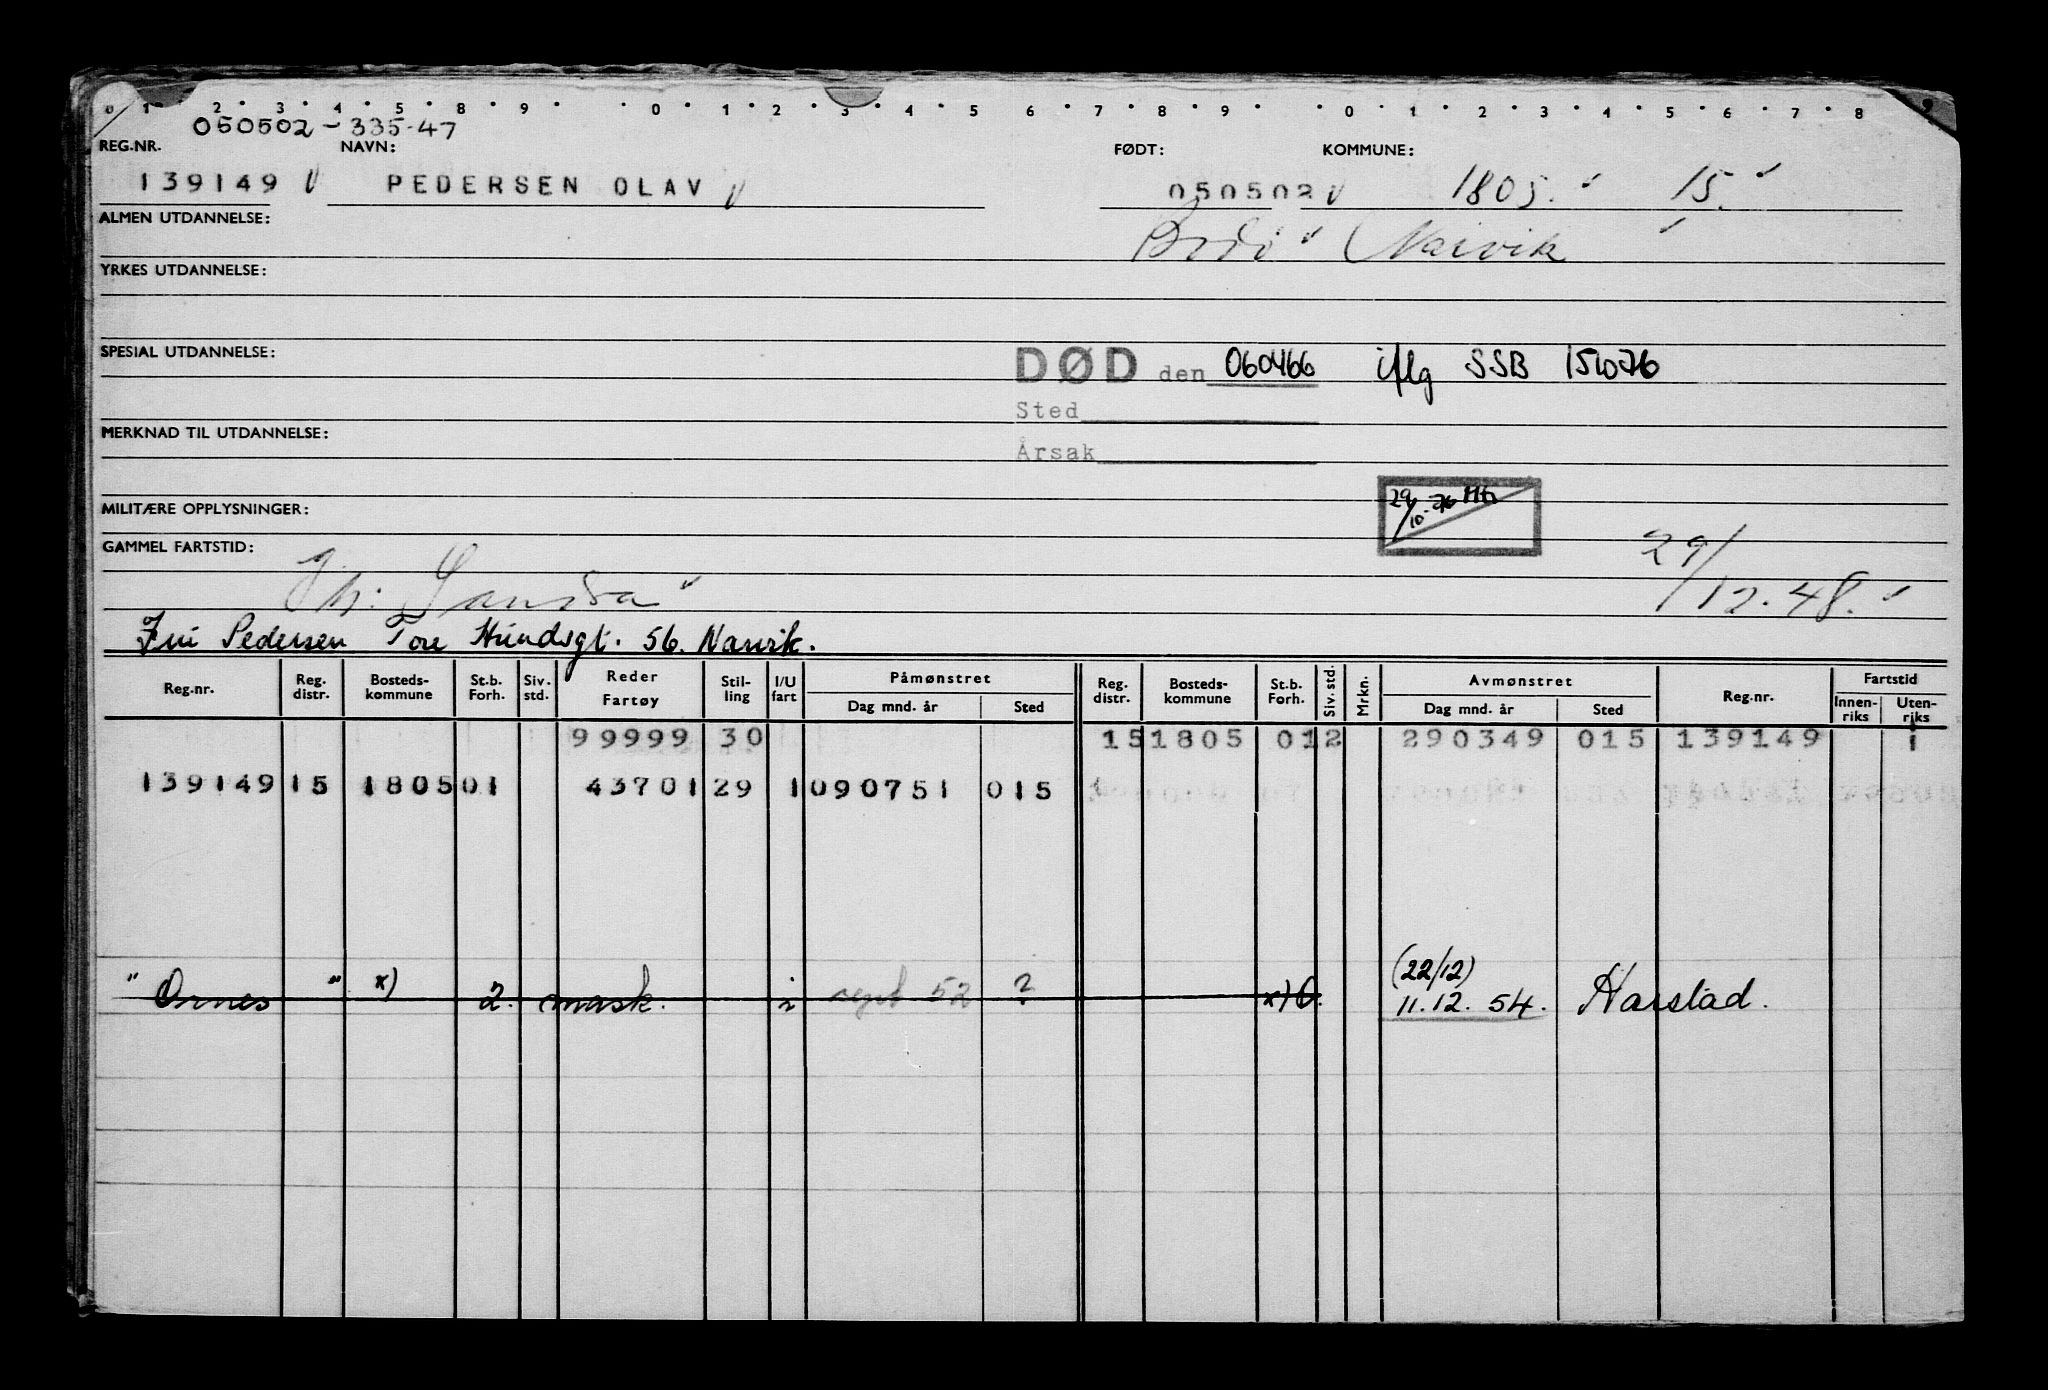 0 1 2 3 4 5 8 9 0 1 2 3 4 5 6 7 8 9 0 1 2 3 4 5 6 7 8 9
050502 - 335-47
REG.NR. NAVN: FØDT: KOMMUNE:
139149 PEDERSEN OLAV 050502 1805. 15.
ALMEN UTDANNELSE:
Bodö Narvik
YRKES UTDANNELSE:
SPESIAL UTDANNELSE:
DØD den 060466 iflg SSB 151076
Sted
MERKNAD TIL UTDANNELSE:
Årsak
29/10-76
MILITÆRE OPPLYSNINGER:
GAMMEL FARTSTID:
29/12.48.
Pedersen Tore Hundsgt. 56. Narvik.
Reg.nr. Reg. distr. Bosteds-kommune St.b. Forh. Siv. std. Reder Fartøy Stil-ling I/U fart Påmønstret Dag mnd. år Sted Reg. distr. Bosteds-kommune St.b. Forh. Siv. std. Mrkn. Avmønstret Dag mnd. år Sted Reg.nr. Fartstid Innen-riks Uten-riks
99999 30 15 1805 01 2 290349 015 139149 1
139149 15 1805 01 43701 29 1 090751 015
" Ornes " x) 2. mask. i sept 52 ? x) 6. (22/12) 11.12.54. Harstad.